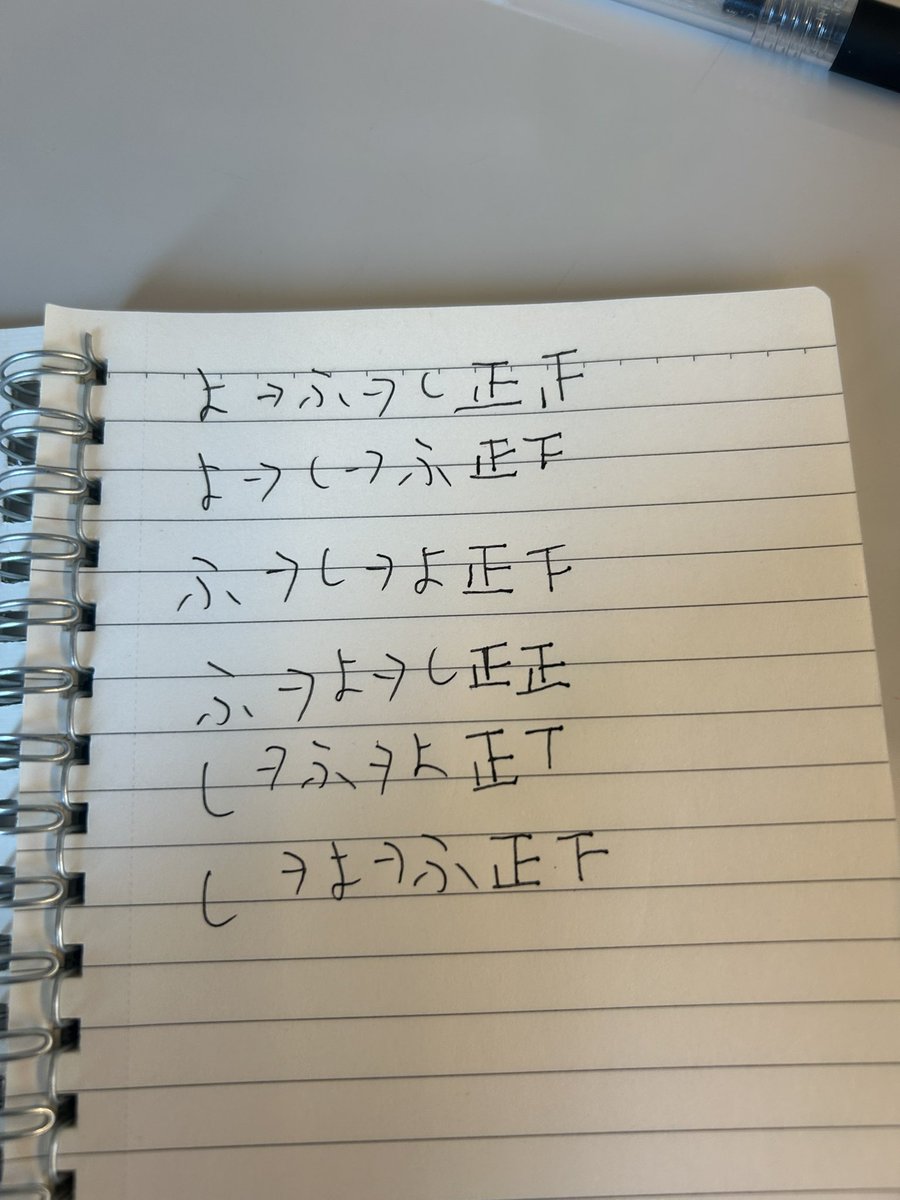 よ→ふ→し正正
よ→し→ふ正下
ふ→し→よ正下
ふ→よ→し正正
し→ふ→よ正丅
し→よ→ふ正下